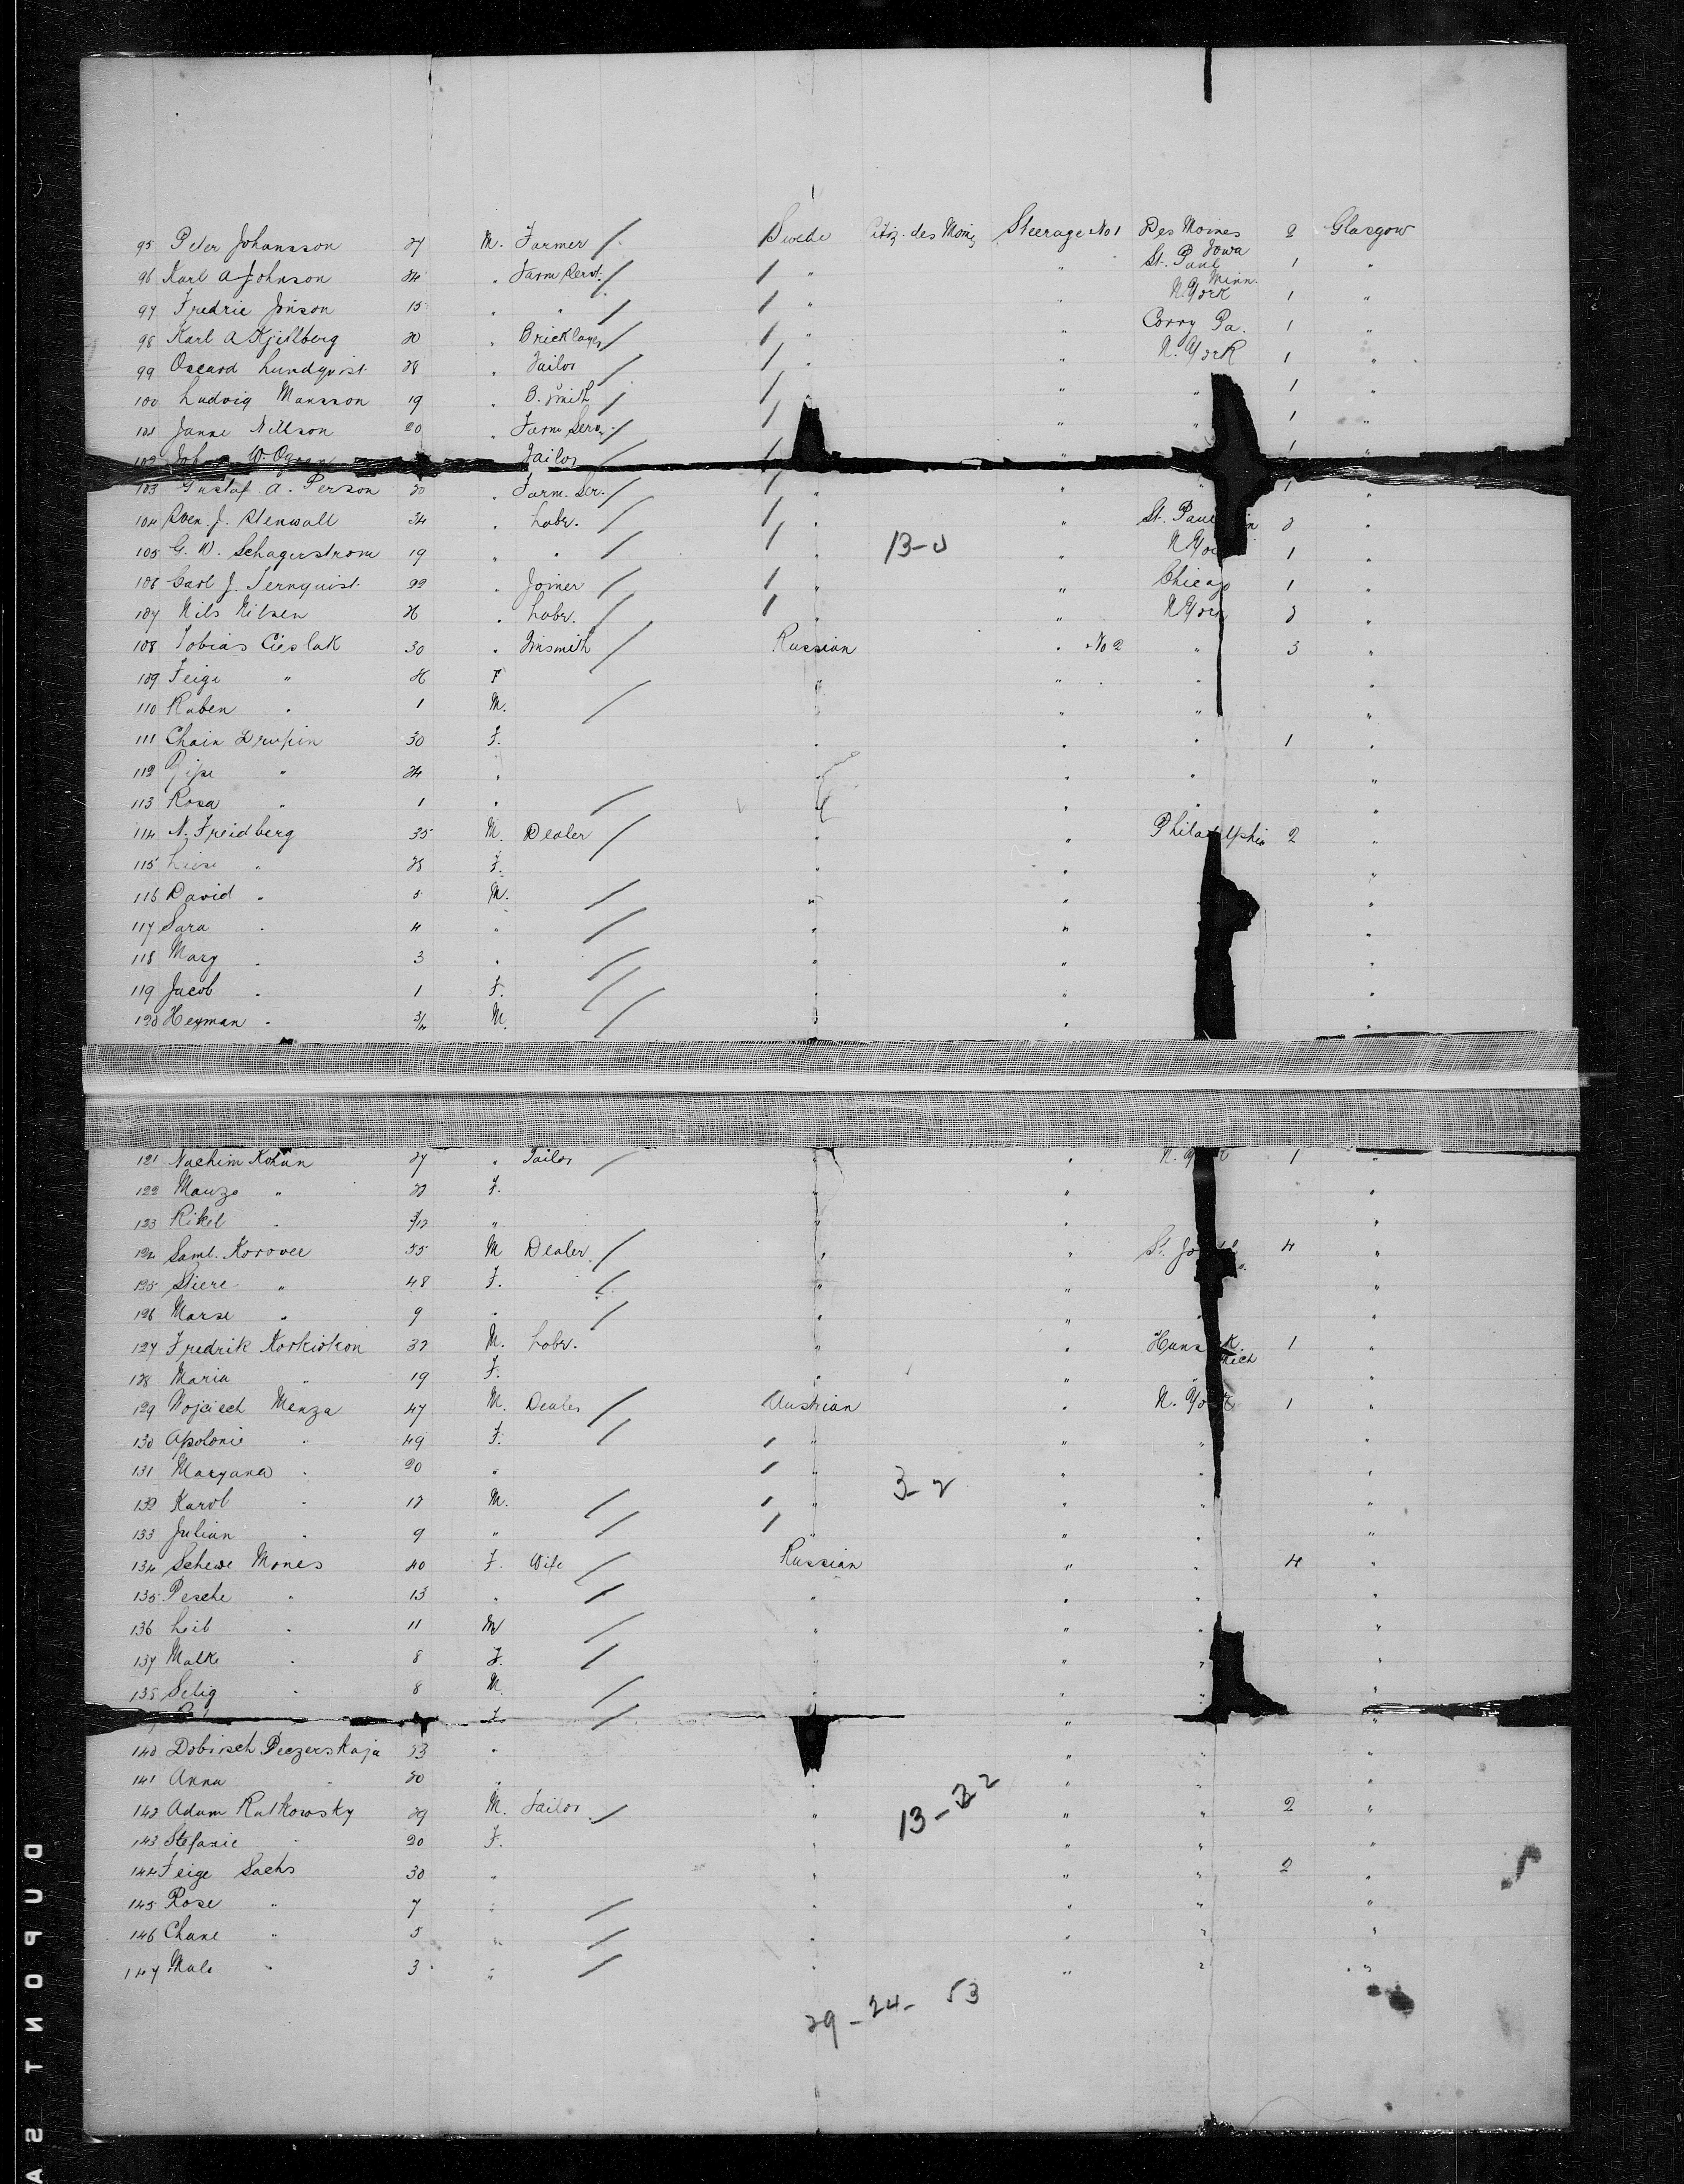 95 Peter Johansson 27 M. Farmer Swede Citiz. des Moin, Steerage No 1 Des Moines Iowa 2 Glasgow
96 Karl A Johnson 24 " Farm Servt. " " St. Paul Minn. 1 "
97 Fredric Jonson 15 " " " " N. York 1 "
98 Karl A Kjellberg 20 " Bricklayer " " Corry Pa. 1 "
99 Oscard Lundquist 28 " Tailor " " N. York 1 "
100 Ludvig Mansson 19 " B. Smith " " " 1 "
101 Janne Nillson 20 " Farm Serv. " " " 1 "
102 W. Tailor " 1 "
103 Gustaf A. Person 20 " Farm. Ser. " " " 1 "
104 Sven. J. Stenwall 24 " Labr. " " St. Paul 2 "
105 G. W. Schagerstrom 19 " " " 13-0 " 1 "
106 Carl J. Ternquist 22 " Joiner " " Chicago 1 "
107 Nils Nilsen 26 " Labr. " " 2 "
108 Tobias Cieslak 30 " Tinsmith Russian " No 2 " 3 "
109 Feige " 26 F " " " "
110 Ruben " 1 M. " " " "
111 Chain Drupin 30 F. " " " 1 "
112 " 24 " " " " "
113 Rosa " 1 " " " " "
114 N. Freidberg 35 M. Dealer " " Philadelphia 2 "
115 " 28 F. " " "
116 David " 5 M. " " "
117 Sara " 4 " " " "
118 Mary " 3 " " " "
119 Jacob " 1 F. " " "
120 Heyman " M. " " "
121 Nachim Kohan 27 " Tailor " " 1 "
122 Manze " F. " " "
123 Rikel " " " " "
124 Saml. Korover 55 M Dealer " " St. 4 "
125 Stiere " 48 F. " " "
126 Marse " 9 " " " " "
127 Fredrik Korkiokon 32 M. Labr. " " Mich 1 "
128 Maria " 19 F. " " " "
129 Wojciech Menza 47 M. Dealer Austrian " N. York 1 "
130 Apolonie " 49 F. " " " "
131 Maryana " 20 " " " " "
132 Karol " 12 M. " " " "
133 Julian " 9 " " " " "
3-2
134 Schewe Mones 40 F. Wife Russian " " 4 "
135 Pesche " 13 " " " " "
136 Leib " 11 M " " " "
137 Malke " 8 F. " " " "
138 Selig " 8 M. " " " "
F. " "
140 Dobisch Peczerskaja 53 " " " "
141 Anna " 20 " " " " "
142 Adam Rutkowsky 29 M. Tailor " " " 2 "
13-32
143 Stefanie " 20 F. " " " "
144 Feige Sachs 30 " " " " 2 "
145 Rose " 7 " " " " "
146 Chane " 5 " " " " "
147 Male " 3 " " " " "
29-24-53
DUPONT SA